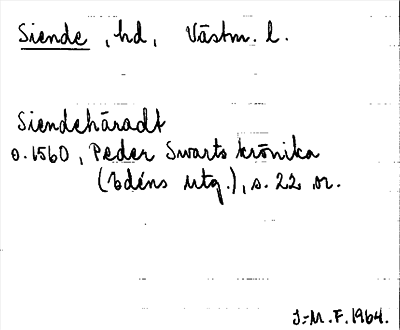 Siende, hd, Västm. l.
Siendehäradt
o. 1560, Peder Swarts krönika
(Edéns utg.), s. 22 m.
J.-M.F. 1964.